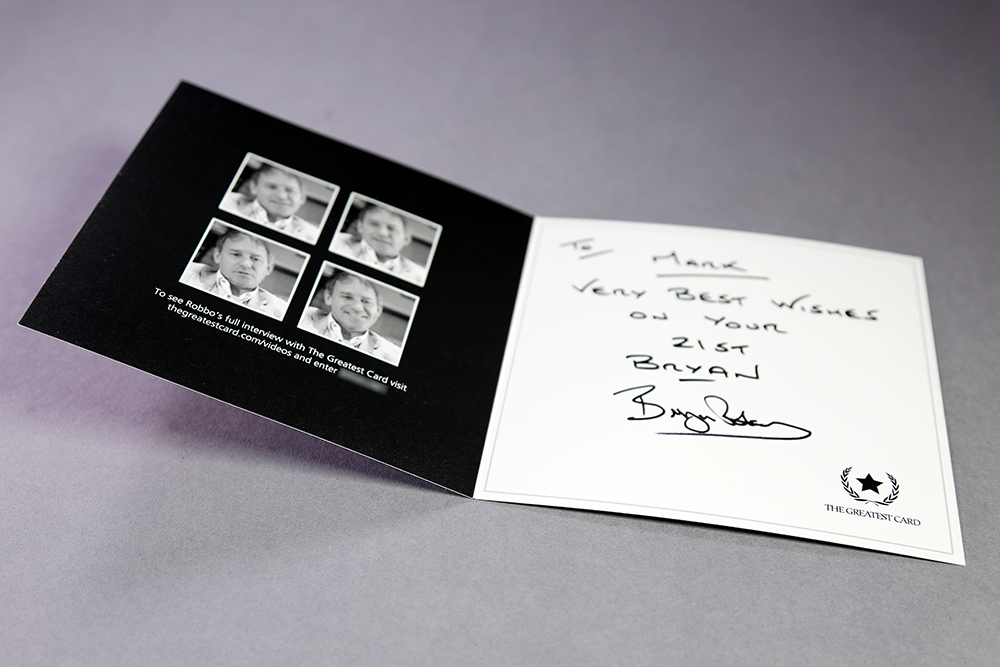 To see Robbo's full interview with The Greatest Card visit
thegreatestcard.com/videos and enter
To Mark
VERY BEST WISHES
ON YOUR
21ST
BRYAN
THE GREATEST CARD